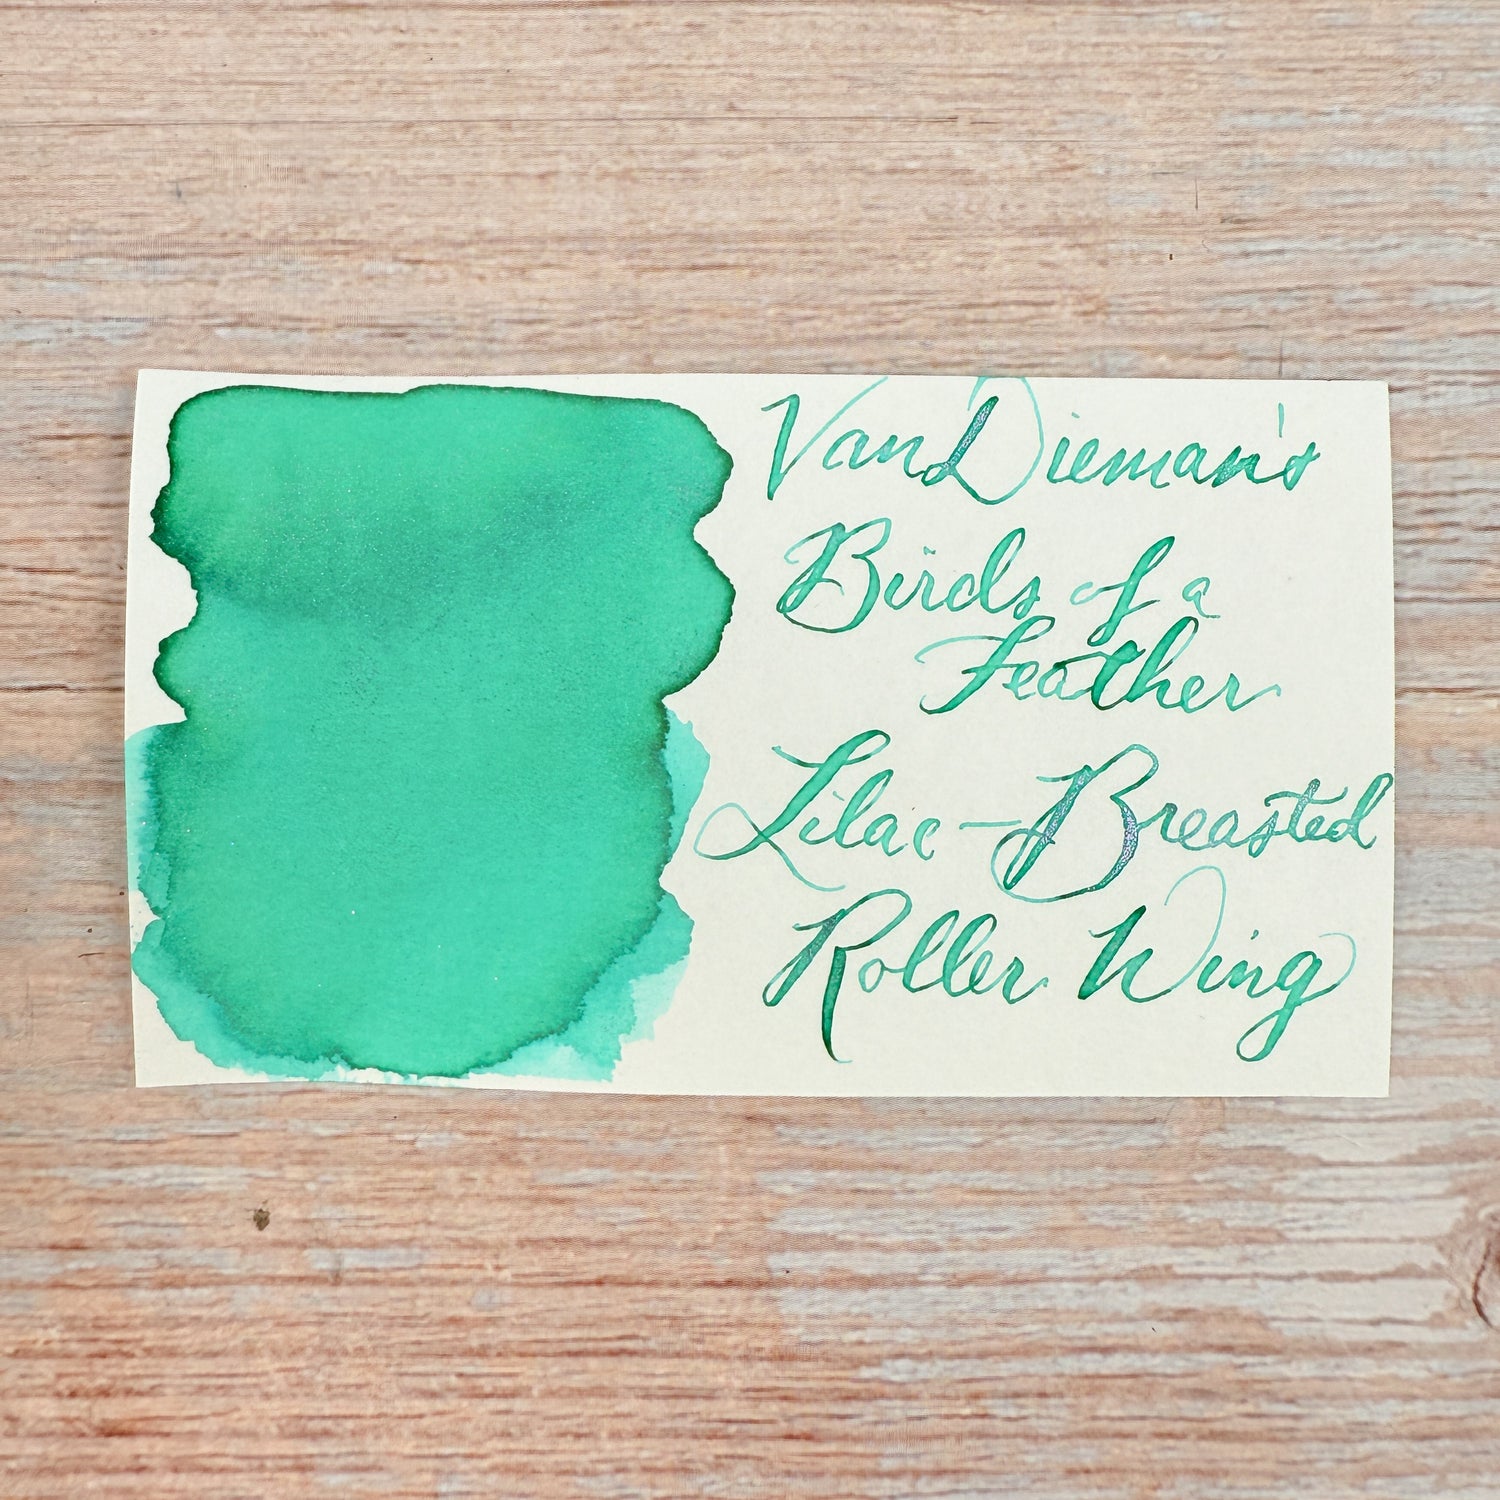 Van Dieman's
Birds of a
Feather
Lilac-Breasted
Roller Wing